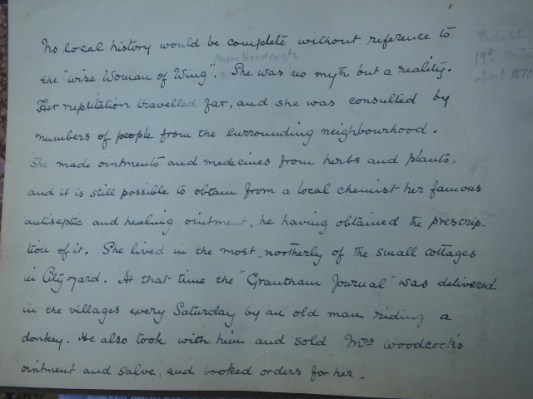 No local history would be complete without reference to
the "Wise Woman of Wing". She was no myth but a reality.
Her reputation travelled far, and she was consulted by
numbers of people from the surrounding neighbourhood.
She made ointments and medecines from herbs and plants,
and it is still possible to obtain from a local chemist her famous
antiseptic and healing ointment, he having obtained the prescrip-
tion of it. She lived in the most northerly of the small cottages
in City yard. At that time the "Grantham Journal" was delivered
in the villages every Saturday by an old man riding a
donkey. He also took with him and sold Mrs Woodcock's
ointment and salve, and booked orders for her.
Woodcock
19th
about 1870